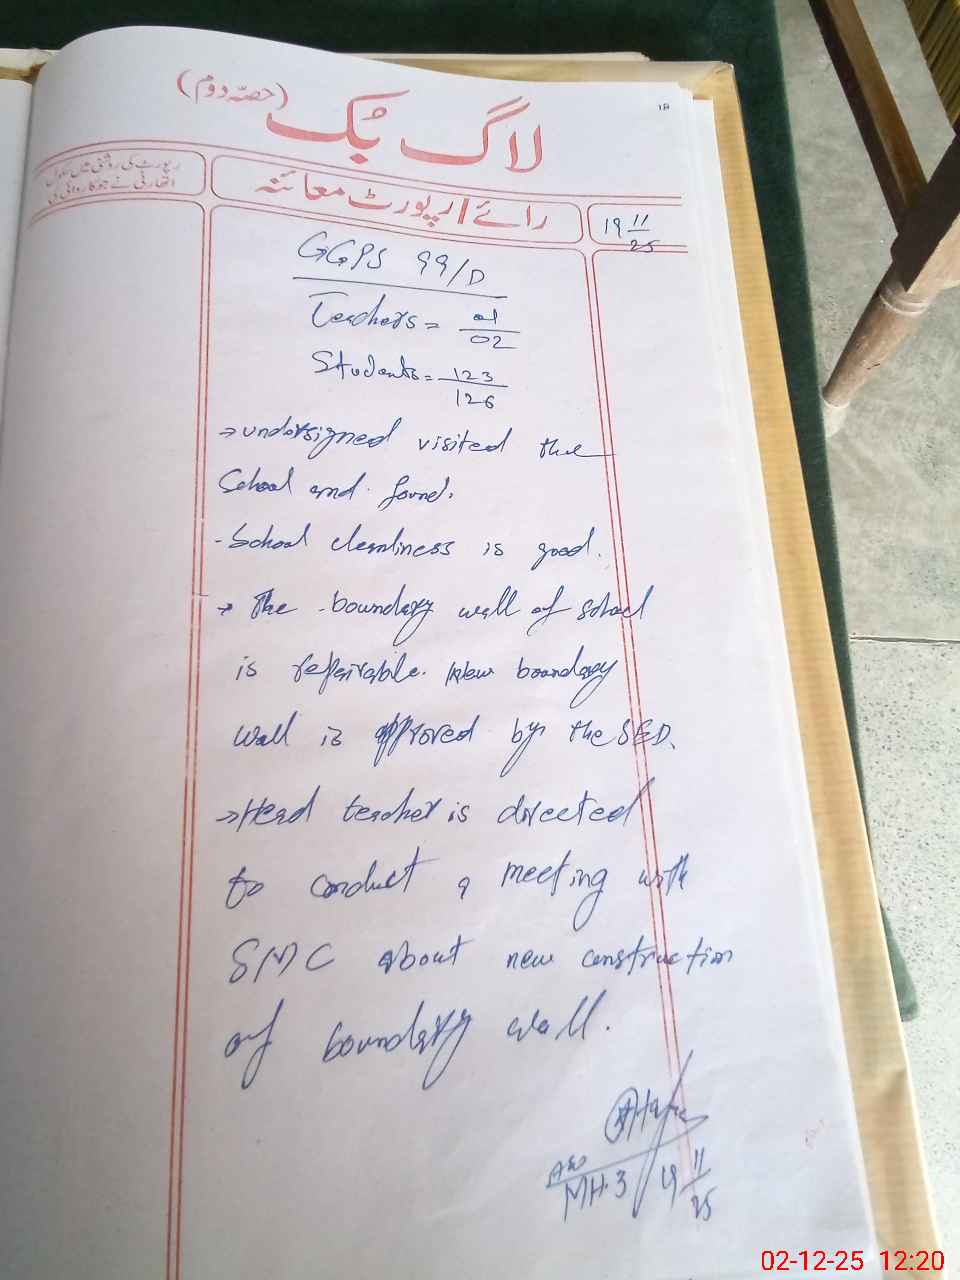 18
لاگ بُک (حصّہ دوم)
رپورٹ کی روشنی میں سکول
اتھارٹی نے جو کاروائی کی
رائے / رپورٹ معائنہ
19 11/25
GGPS 99/D
Teachers = 01/02
Students = 123/126
→ undersigned visited the
School and found.
- School cleanliness is good.
→ The boundary wall of school
is repairable. New boundary
wall is approved by the SED.
→ Head teacher is directed
to conduct a meeting with
SMC about new construction
of boundary wall.
AEO
MH-3 19 11/25
02-12-25 12:20